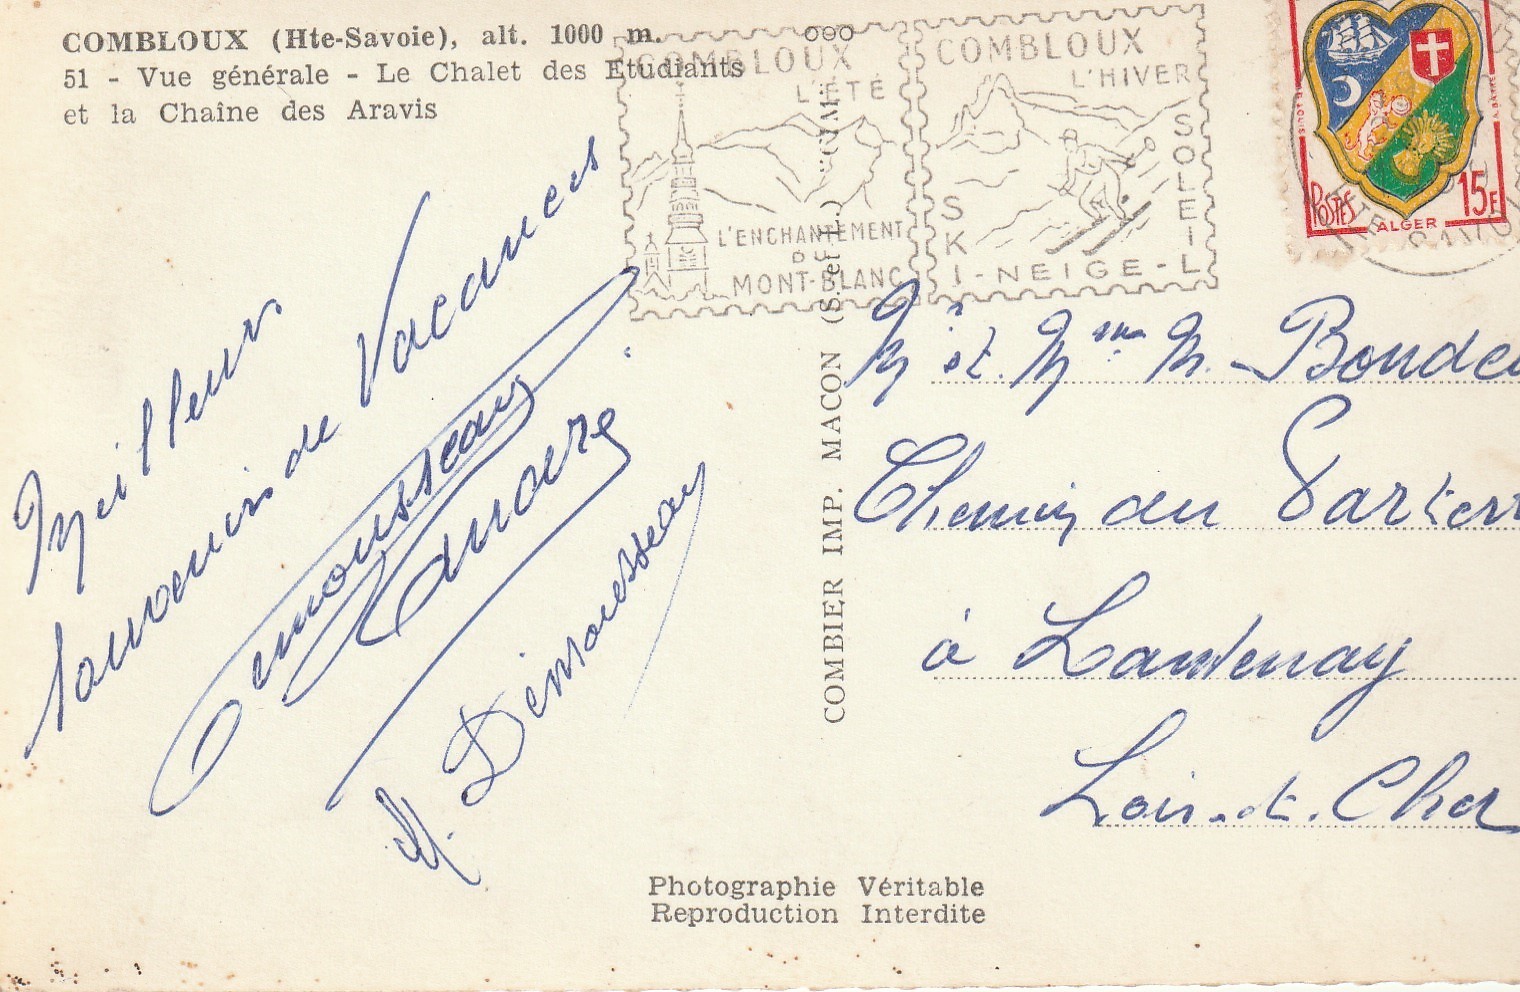 COMBLOUX (Hte-Savoie), alt. 1000 m.
51 - Vue générale - Le Chalet des Etudiants
et la Chaîne des Aravis
COMBLOUX
L'ÉTÉ
L'ENCHANTEMENT
DU
MONT-BLANC
COMBLOUX
L'HIVER
SKI-NEIGE-SOLEIL
POSTES
ALGER
15F
Meilleurs
souvenirs de Vacances
Demousseau
M. Démousseau
M et Mme M. Boude
Chemin du
à Lanthenay
Loir-et-Cher
COMBIER IMP. MACON (S. et L.)
Photographie Véritable
Reproduction Interdite